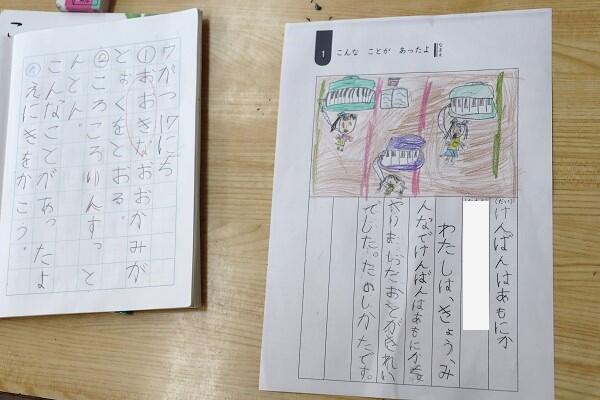 7がつ17にち
①おおきなおおかみが
とおくをとおる。
②ころころりんすっと
んとん。
こんなことがあったよ
③えにきをかこう。
1 こんな ことが あったよ
なまえ
(だい)
けんばんはあもにか
わたしは、きょう、み
んなでけんばんはあもにかを
やりました。おとがきれい
でした。たのしかたです。